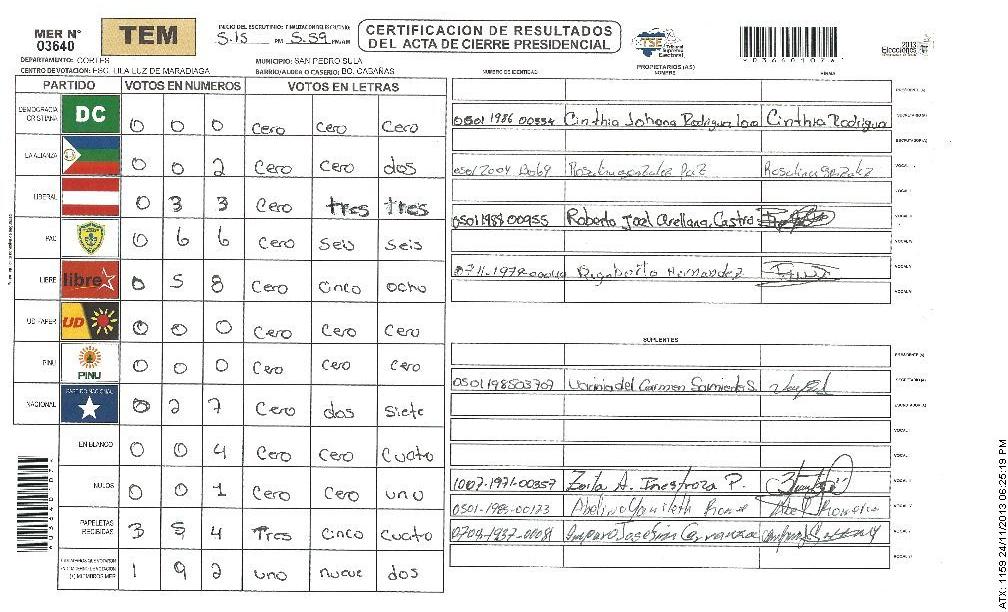 MER N° 03640
TEM
INICIO DEL ESCRUTINIO: FINALIZACION DEL ESCRUTINIO:
5:15 PM 5:59 PM/AM
CERTIFICACION DE RESULTADOS
DEL ACTA DE CIERRE PRESIDENCIAL
TSE Tribunal Supremo Electoral
2013
Elecciones
DEPARTAMENTO: CORTES
MUNICIPIO: SAN PEDRO SULA
CENTRO DE VOTACION: ESC. LILA LUZ DE MARADIAGA
BARRIO/ALDEA O CASERIO: BO. CABAÑAS
NUMERO DE IDENTIDAD
PROPIETARIOS (AS)
NOMBRE
FIRMA
PARTIDO VOTOS EN NUMEROS VOTOS EN LETRAS
DEMOCRACIA CRISTIANA DC 0 0 0 Cero Cero Cero
LA ALIANZA 0 0 2 Cero Cero dos
LIBERAL 0 3 3 Cero tres tres
PAC 0 6 6 Cero Seis Seis
LIBRE libre 0 5 8 Cero Cinco ocho
UD-FAPER UD 0 0 0 Cero Cero Cero
PINU PINU 0 0 0 Cero Cero Cero
NACIONAL PARTIDO NACIONAL 0 2 7 Cero dos Siete
EN BLANCO 0 0 4 Cero Cero Cuatro
NULOS 0 0 1 Cero Cero uno
PAPELETAS RECIBIDAS 3 5 4 Tres Cinco Cuatro
(+) MIEMBROS MER 1 9 2 uno nueve dos
PRESIDENTE (A)
0501 1986 00334 Cinthia Johana Rodriguez Cinthia Rodrigua SECRETARIO (A)
ESCRUTADOR (A)
Rosalina Gonzalez Paz Rosalina Gonzalez VOCAL I
VOCAL II
0501 1988 00955 Roberto Joel Arellano Castro VOCAL III
VOCAL IV
Rigoberto Hernandez VOCAL V
SUPLENTES
PRESIDENTE (A)
0501198503707 del Carmen Sarmiento S. SECRETARIO (A)
ESCRUTADOR (A)
VOCAL I
VOCAL II
1007-1971-00357 Zoila A. Inestroza P.
0501-1985-00173
ATX: 1159 24/11/2013 06:25:19 PM